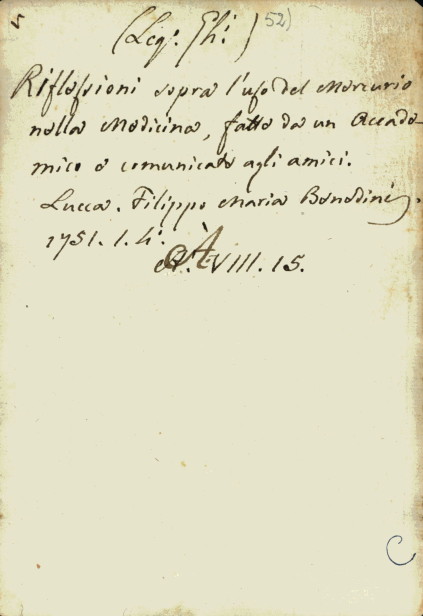 (Leg. Ghi.) 52)
Riflessioni sopra l'uso del Mercurio
nella Medicina, fatte da un Accade-
mico e comunicate agli amici.
Lucca. Filippo Maria Benedini.
1751. 1. 4°.
A. VIII. 15.
C